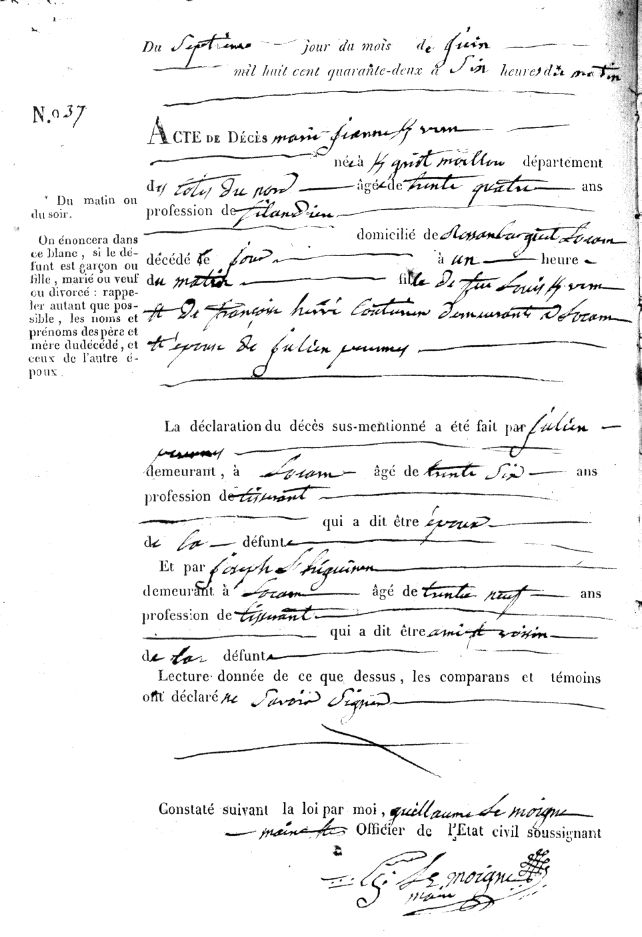 Du Septième jour du mois de Juin
mil huit cent quarante-deux à Six heures du matin
N.o 37
ACTE DE DÉCÈS marie jeanne
né à département
des Cotes du nord âgé de trente quatre ans
profession de filandière
domicilié de
décédé le jour à un heure
du matin fille de feu Louis
et de françoise hervé Couturière demeurante a
et épouse de Julien
* Du matin ou
du soir.
On énoncera dans
ce blanc, si le dé-
funt est garçon ou
fille, marié ou veuf
ou divorcé: rappe-
ler autant que pos-
sible, les noms et
prénoms des père et
mère du décédé, et
ceux de l'autre é-
poux.
La déclaration du décès sus-mentionné a été fait par Julien
demeurant, à âgé de trente Six ans
profession de tisserant
qui a dit être époux
de la défunte
Et par joseph
demeurant à âgé de trente neuf ans
profession de tisserant
qui a dit être ami et voisin
de la défunte
Lecture donnée de ce que dessus, les comparans et témoins
ont déclaré ne Savoir Signer
Constaté suivant la loi par moi, guillaume Le moigne
maire Officier de l'Etat civil soussignant
G. Le moigne
maire